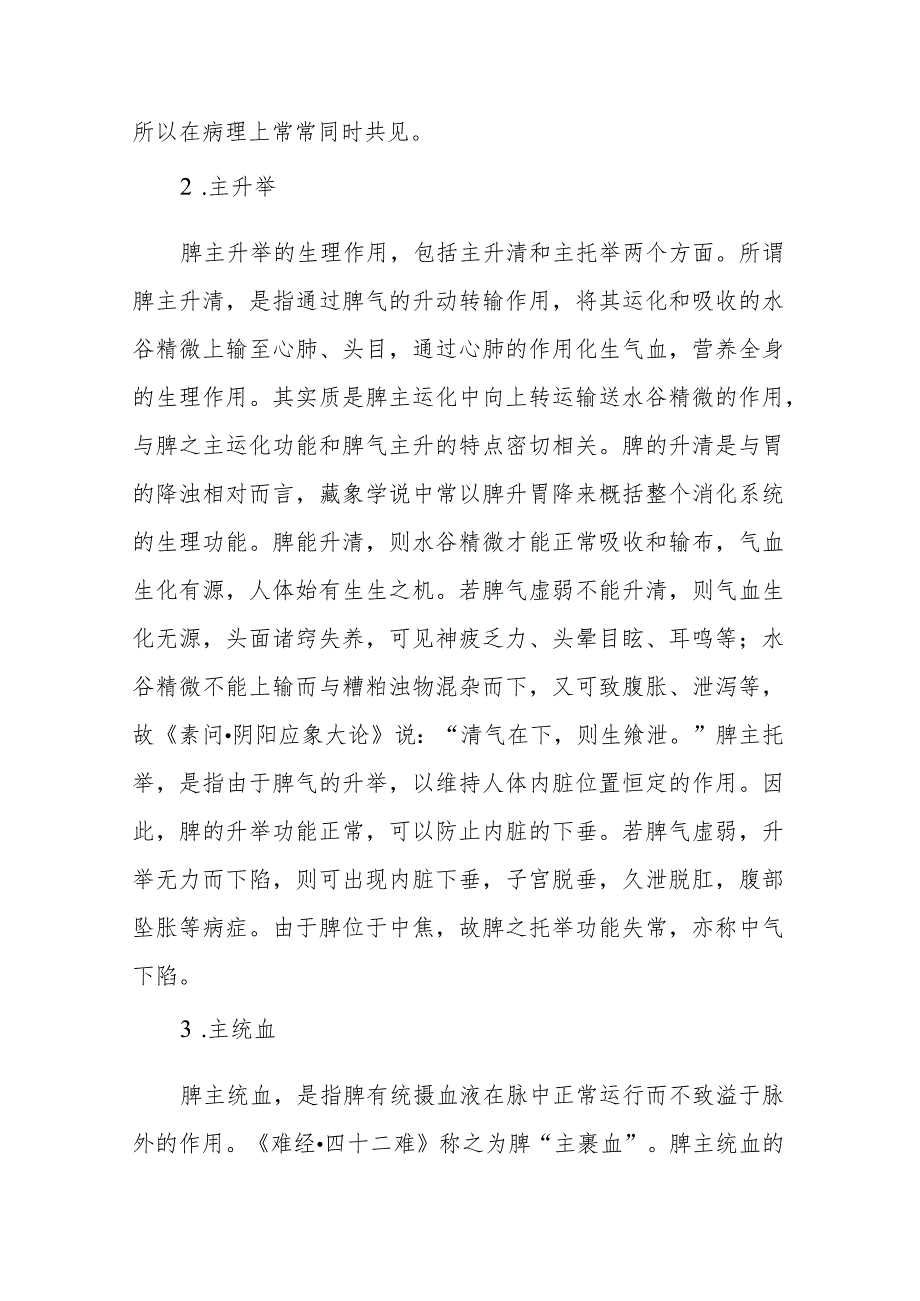 所以在病理上常常同时共见。
2 .主升举
脾主升举的生理作用，包括主升清和主托举两个方面。所谓
脾主升清，是指通过脾气的升动转输作用，将其运化和吸收的水
谷精微上输至心肺、头目，通过心肺的作用化生气血，营养全身
的生理作用。其实质是脾主运化中向上转运输送水谷精微的作用，
与脾之主运化功能和脾气主升的特点密切相关。脾的升清是与胃
的降浊相对而言，藏象学说中常以脾升胃降来概括整个消化系统
的生理功能。脾能升清，则水谷精微才能正常吸收和输布，气血
生化有源，人体始有生生之机。若脾气虚弱不能升清，则气血生
化无源，头面诸窍失养，可见神疲乏力、头晕目眩、耳鸣等；水
谷精微不能上输而与糟粕浊物混杂而下，又可致腹胀、泄泻等，
故《素问•阴阳应象大论》说：“清气在下，则生飧泄。”脾主托
举，是指由于脾气的升举，以维持人体内脏位置恒定的作用。因
此，脾的升举功能正常，可以防止内脏的下垂。若脾气虚弱，升
举无力而下陷，则可出现内脏下垂，子宫脱垂，久泄脱肛，腹部
坠胀等病症。由于脾位于中焦，故脾之托举功能失常，亦称中气
下陷。
3 .主统血
脾主统血，是指脾有统摄血液在脉中正常运行而不致溢于脉
外的作用。《难经•四十二难》称之为脾“主裹血”。脾主统血的